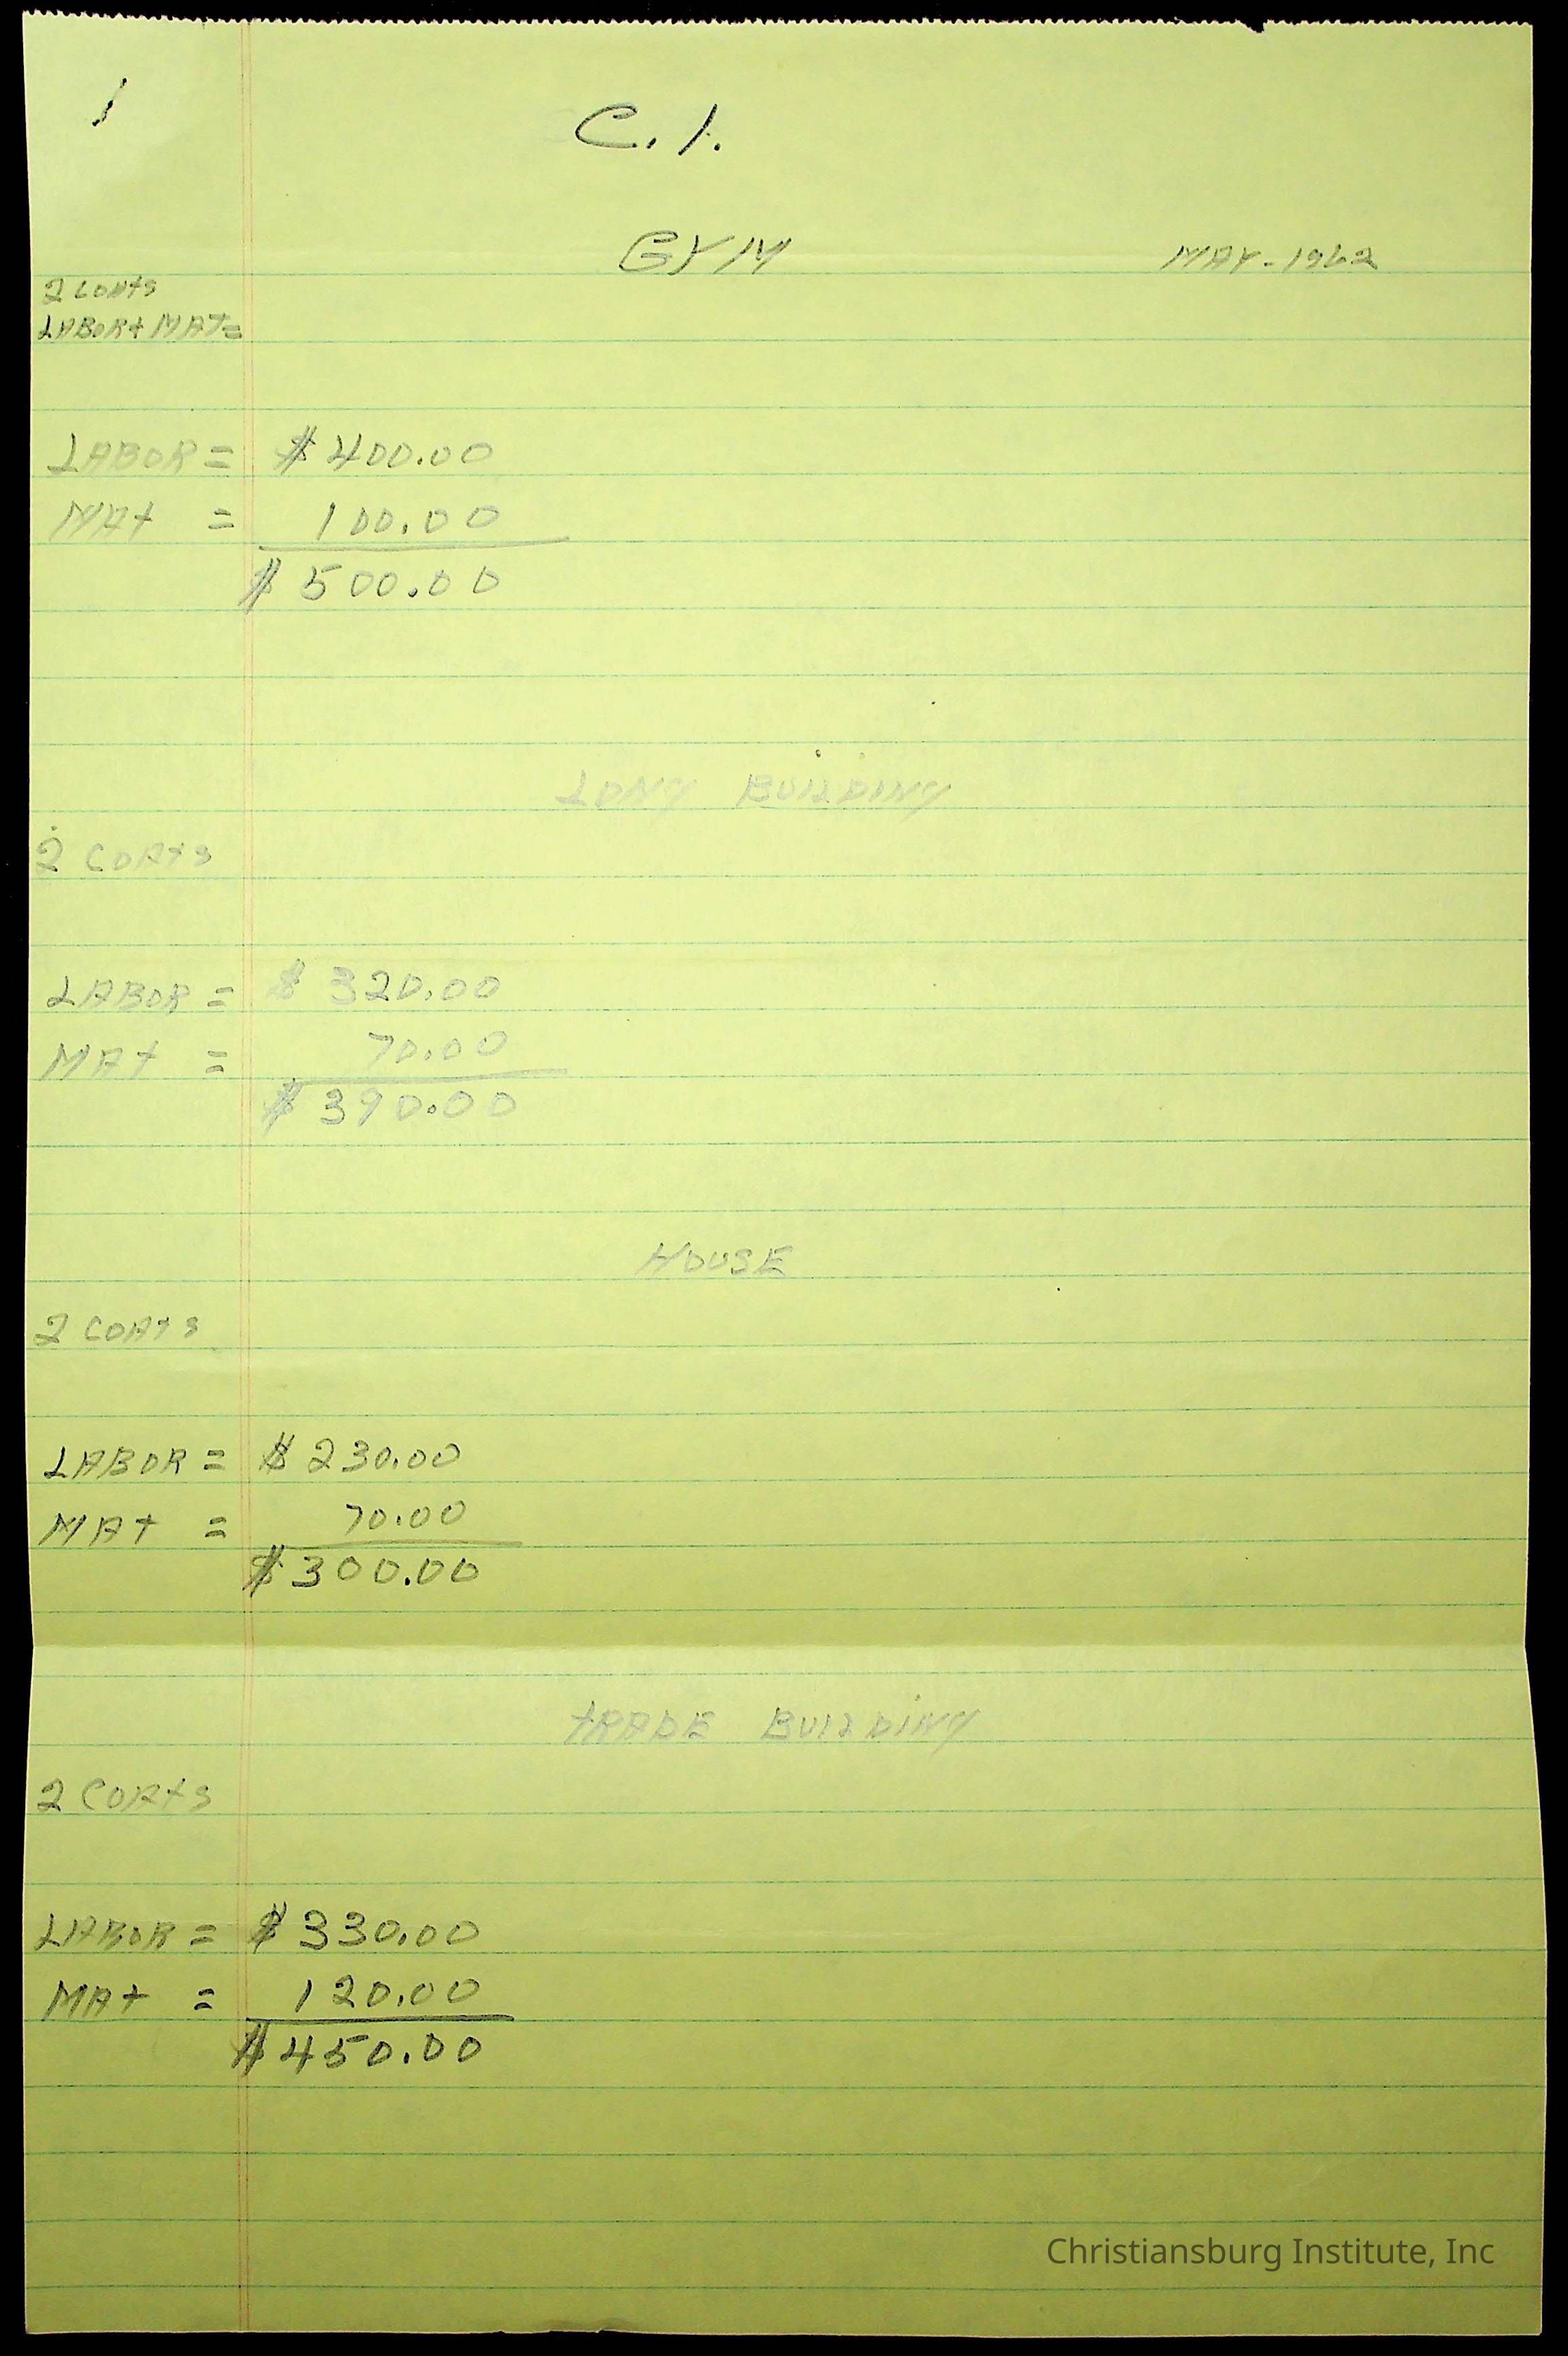 1
C. I.
GYM
MAY-1962
2 COATS
LABOR + MAT=
LABOR = $400.00
MAT = 100.00
$500.00
LONG BUILDING
2 COATS
LABOR = $320.00
MAT = 70.00
$390.00
HOUSE
2 COATS
LABOR = $230.00
MAT = 70.00
$300.00
TRADE BUILDING
2 COATS
LABOR = $330.00
MAT = 120.00
$450.00
Christiansburg Institute, Inc